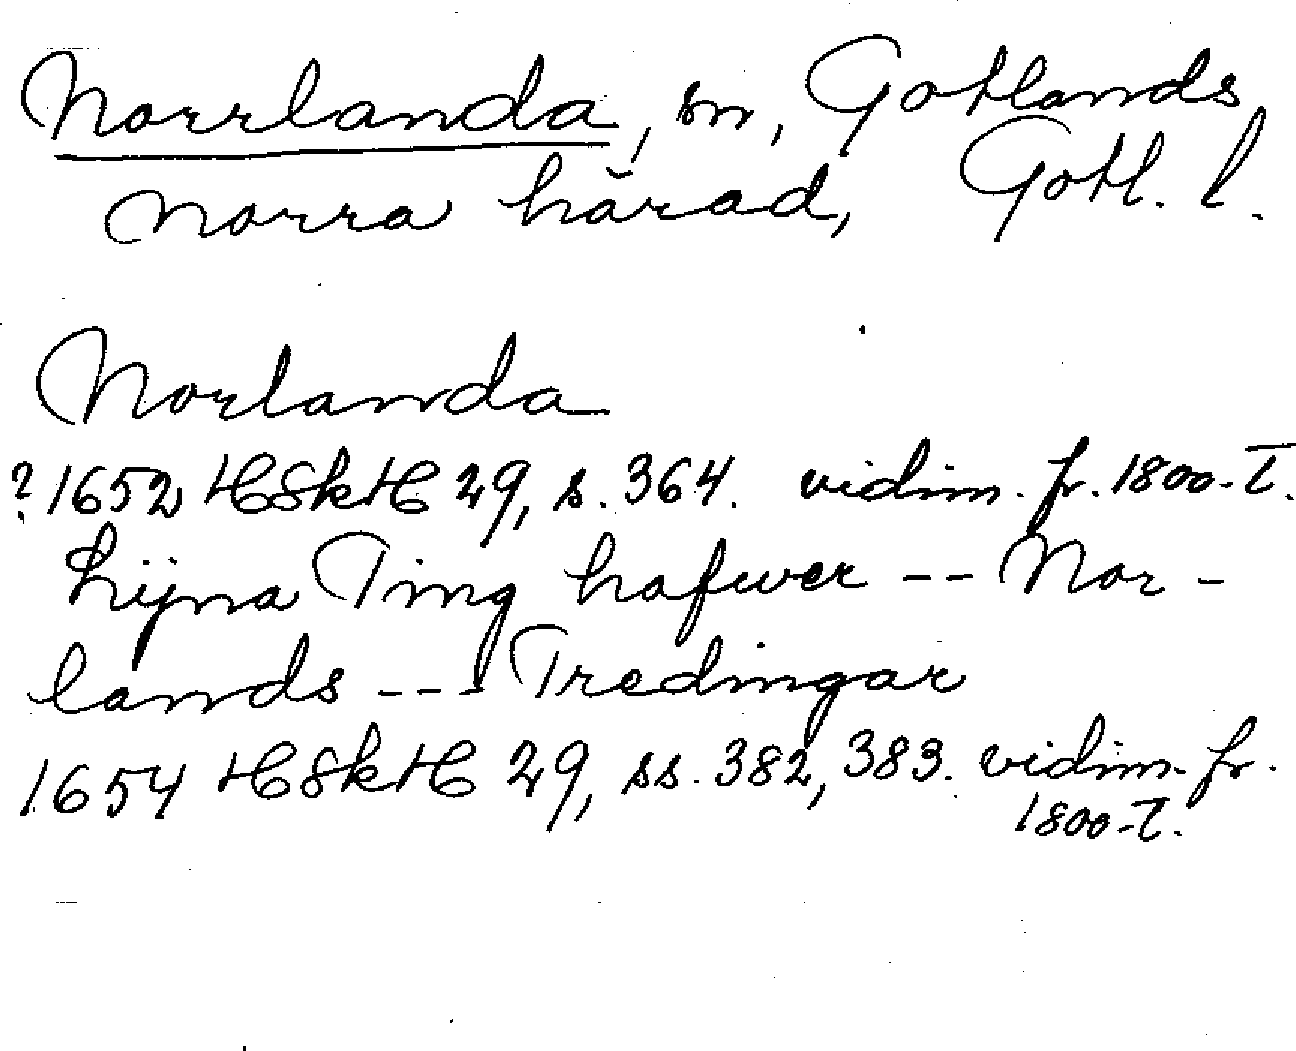 Norrlanda, sn, Gotlands
norra härad, Gotl. l.
Norlanda
? 1652 HSkH 29, s. 364. vidim. fr. 1800-t.
hijna Ting hafwer -- Nor-
lands --- Tredingar
1654 HSkH 29, ss. 382, 383. vidim. fr.
1800-t.